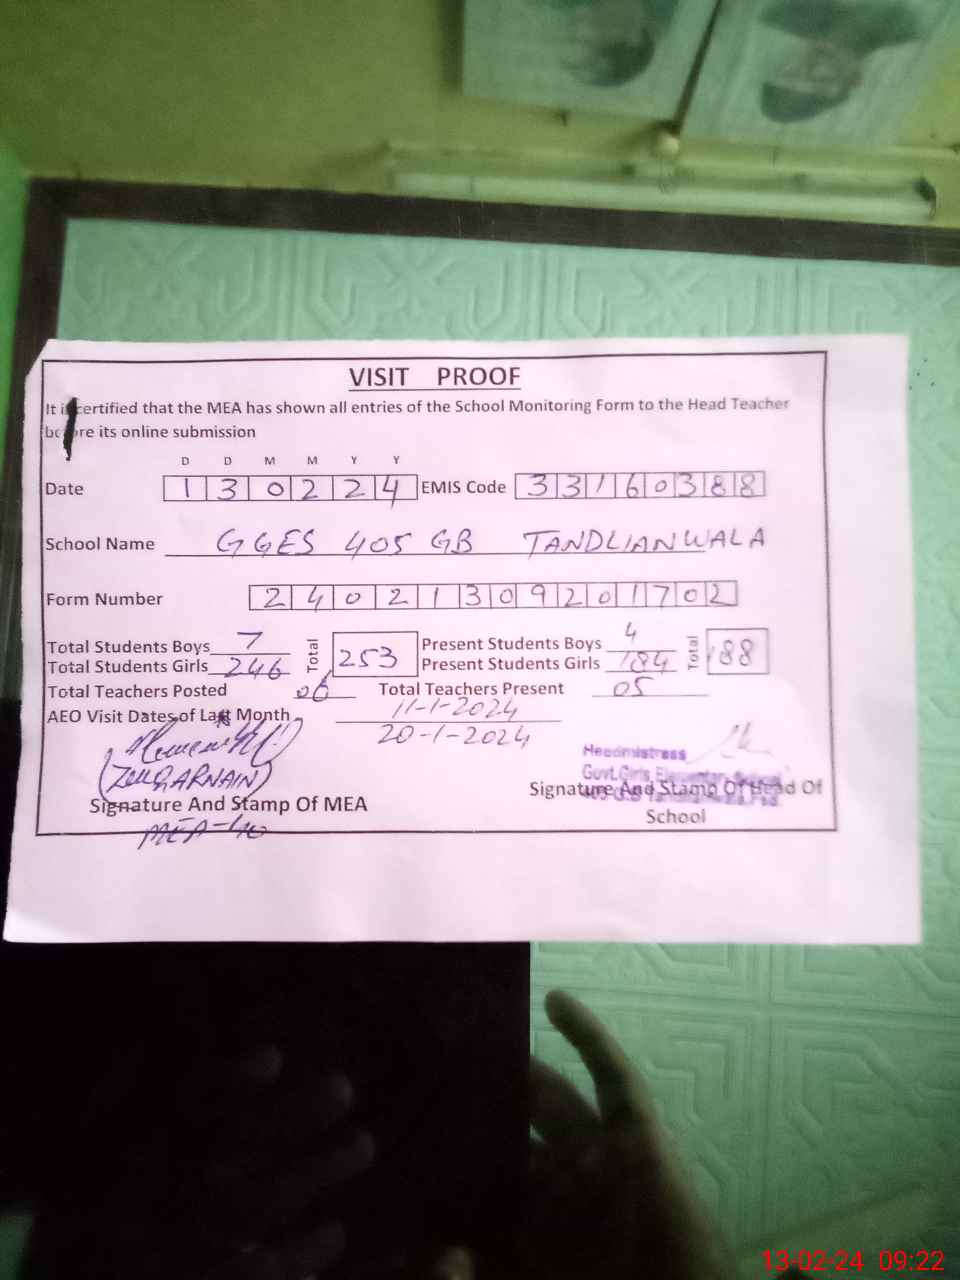 VISIT PROOF
It is certified that the MEA has shown all entries of the School Monitoring Form to the Head Teacher
before its online submission
D D M M Y Y
Date 1 3 0 2 2 4 EMIS Code 3 3 1 6 0 3 8 8
School Name GGES 405 GB TANDLIANWALA
Form Number 2 4 0 2 1 3 0 9 2 0 1 7 0 2
Total Students Boys 7 Total 253 Present Students Boys 4 Total 188
Total Students Girls 246 Present Students Girls 184
Total Teachers Posted 06 Total Teachers Present 05
AEO Visit Dates of Last Month 11-1-2024
20-1-2024
(ZULQARNAIN)
Headmistress
Govt. Girls Elementary School
Signature And Stamp Of MEA
Signature And Stamp Of Head Of
School
MEA-40
13-02-24 09:22